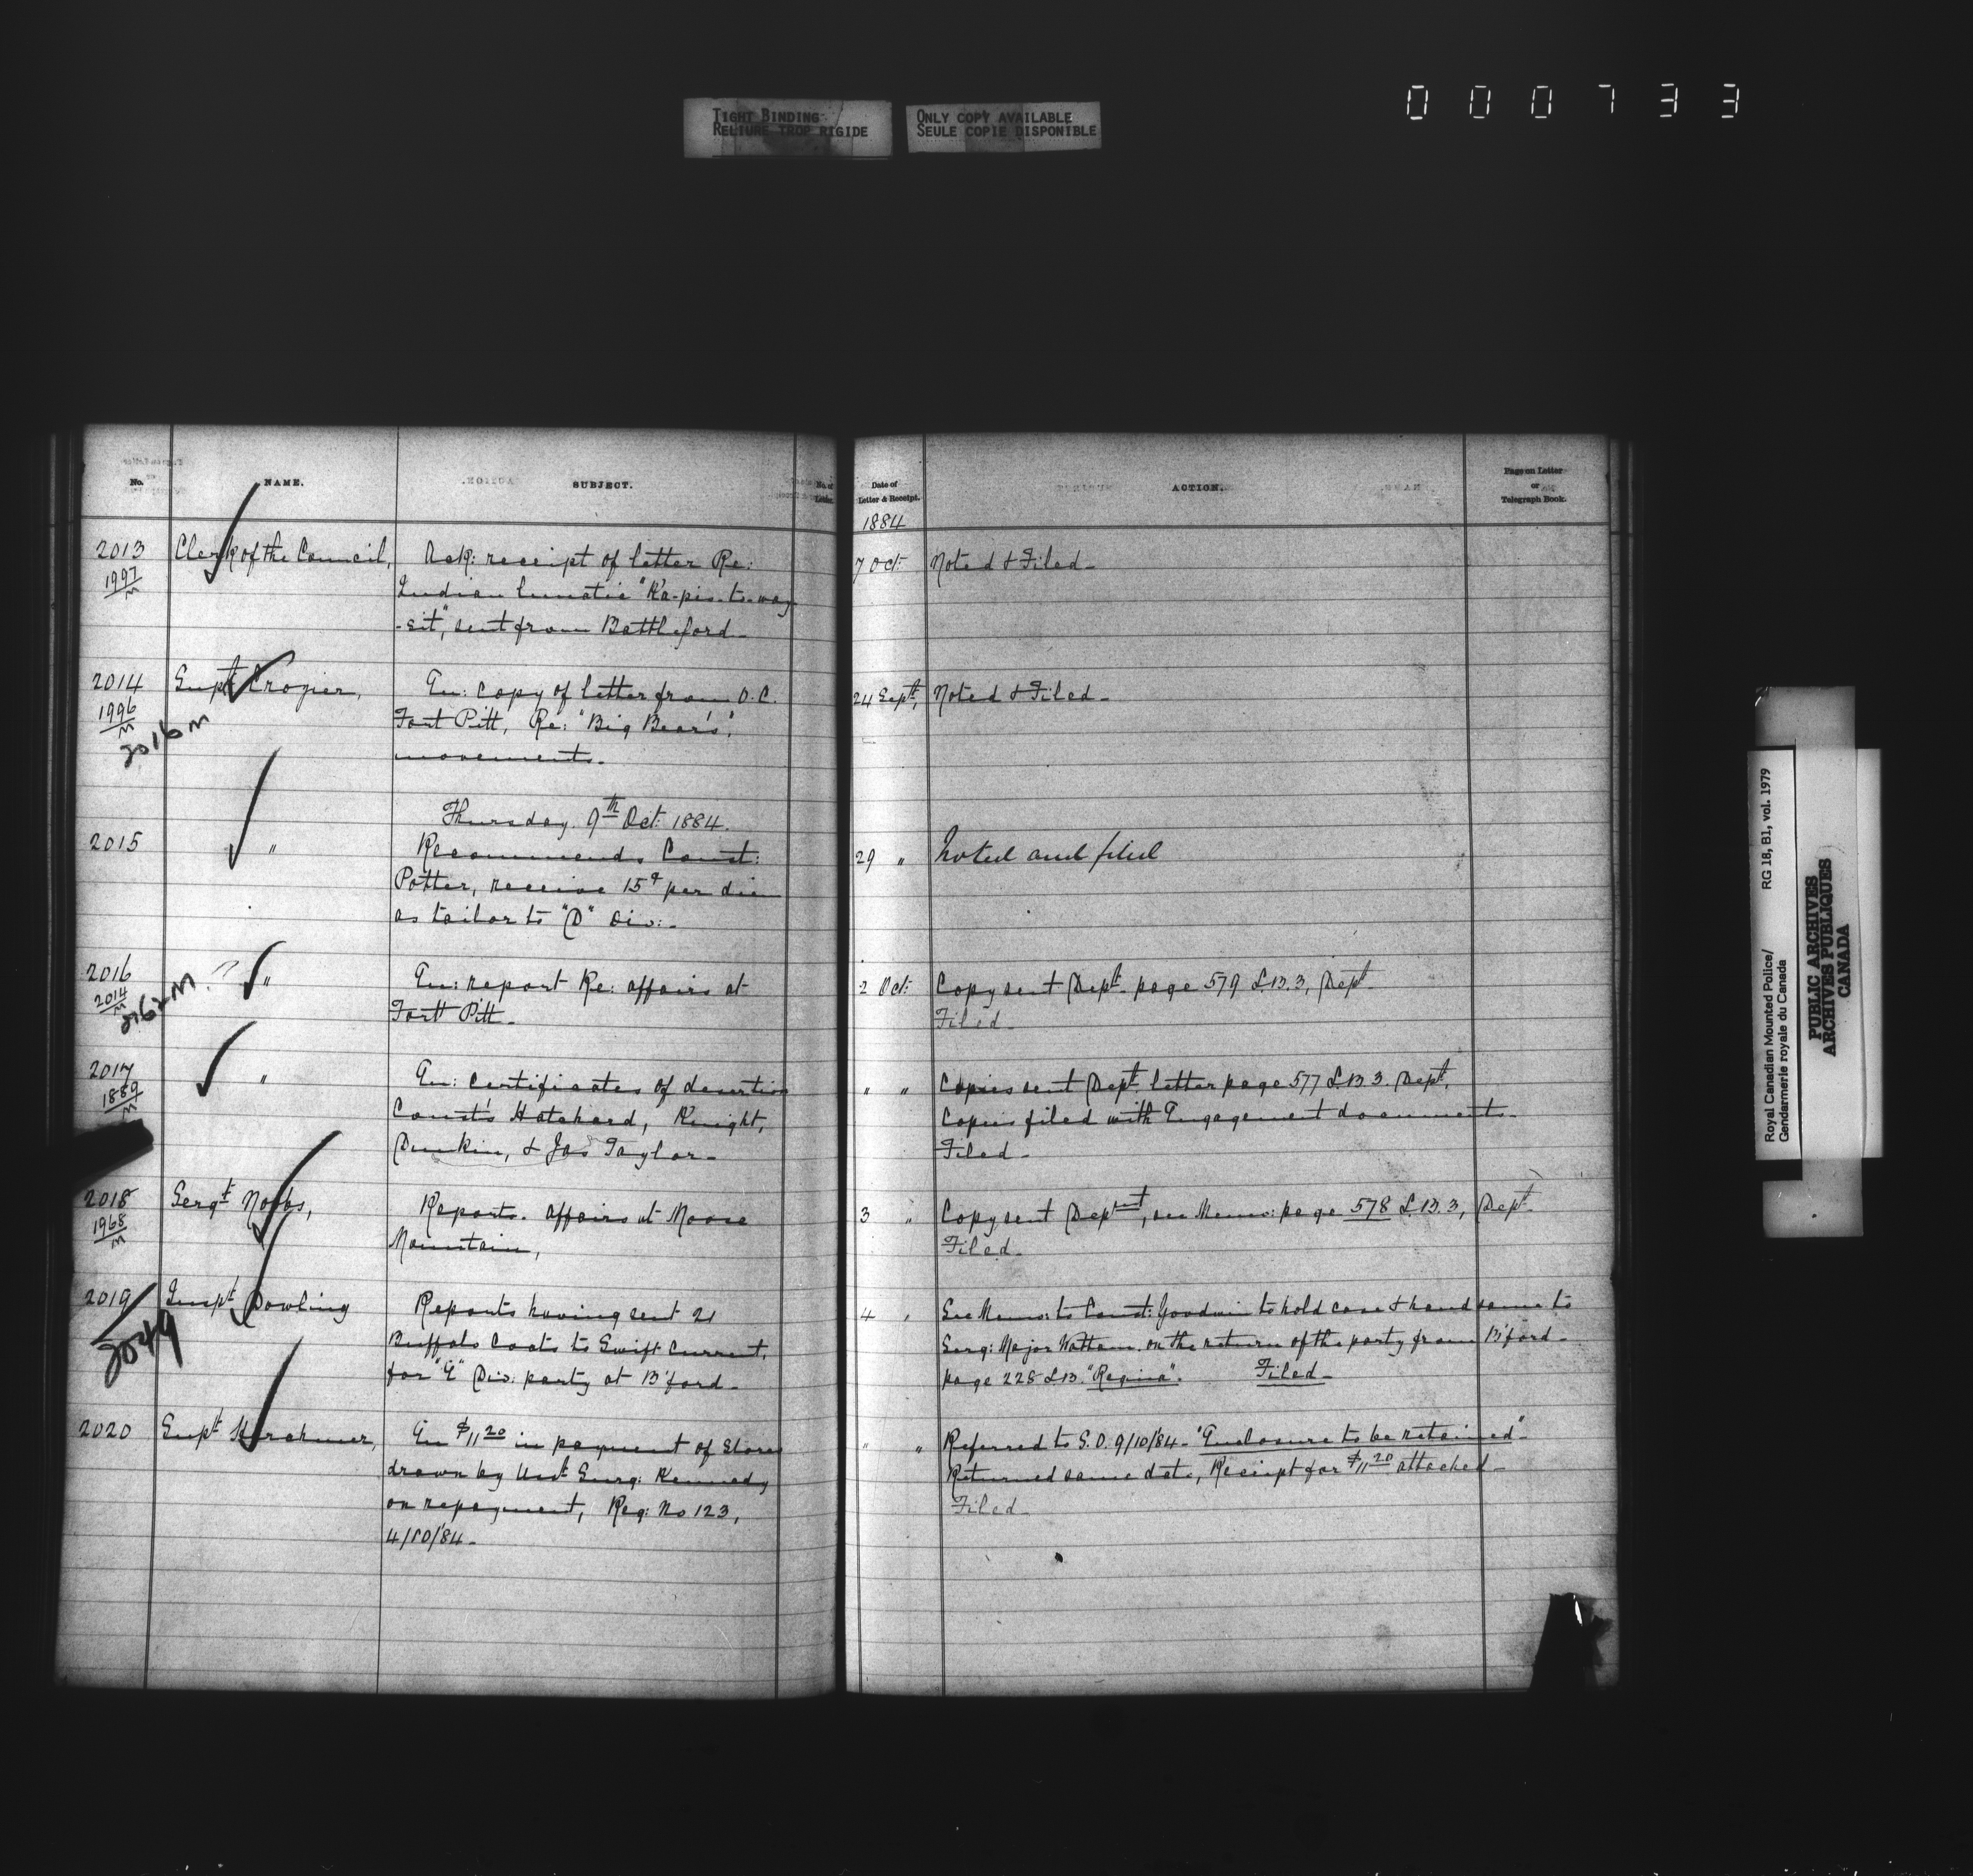 000733
TIGHT BINDING
RELIURE TROP RIGIDE
ONLY COPY AVAILABLE
SEULE COPIE DISPONIBLE
No.
NAME.
SUBJECT.
No. of Letter.
2013
1997
M
Clerk of the Council,
Ack: receipt of letter Re:
Indian lunatic "Ka-pis-to-way
-sit", sent from Battleford-
2014
1996
M
2016 M
Supt Crozier,
En: copy of letter from O.C.
Fort Pitt, Re: "Big Bear's"
movements.
Thursday. 9th Oct: 1884.
2015
"
Recommends Const:
Potter, receive 15¢ per diem
as tailor to "D" Div:-
2016
2014
M
2162 M ?
"
En: report Re: affairs at
Fort Pitt-
2017
1889
M
"
En: Certificates of desertion
Const's Hatchard, Knight,
Dunkin, & Jas Taylor-
2018
1968
M
Sergt Nobbs,
Reports. affairs at Moose
Mountain,
2019
2049
Inspt Dowling
Reports having sent 21
Buffalo Coats to Swift Current,
for "E" Div: party at B'ford-
2020
Supt Herchmer,
En $11 20 in payment of Stores
drawn by Asst Surg: Kennedy
on repayment, Req: No 123,
4/10/84-
Date of
Letter & Receipt.
ACTION.
Page on Letter
or
Telegraph Book.
1884
7 Oct: Noted & Filed-
24 Sept, Noted & Filed-
29 " Noted and filed
2 Oct: Copy sent Dept- page 579 L.B.3, Dept-
Filed-
" " Copies sent Dept. letter page 577 L.B 3. Dept.
Copies filed with Engagement documents-
Filed-
3 " Copy sent Deptmt, see Memo: page 578 L.B.3, Dept-
Filed-
4 " See Memo: to Const: Goodwin to hold case & hand same to
Serg: Major Wattam. on the return of the party from B'ford-
page 228 L.B. "Regina". Filed-
" " Referred to S.O. 9/10/84- "Enclosure to be retained"-
Returned same date, Receipt for $11 20 attached-
Filed-
Royal Canadian Mounted Police/ RG 18, B1, vol. 1979
Gendarmerie royale du Canada
PUBLIC ARCHIVES
ARCHIVES PUBLIQUES
CANADA